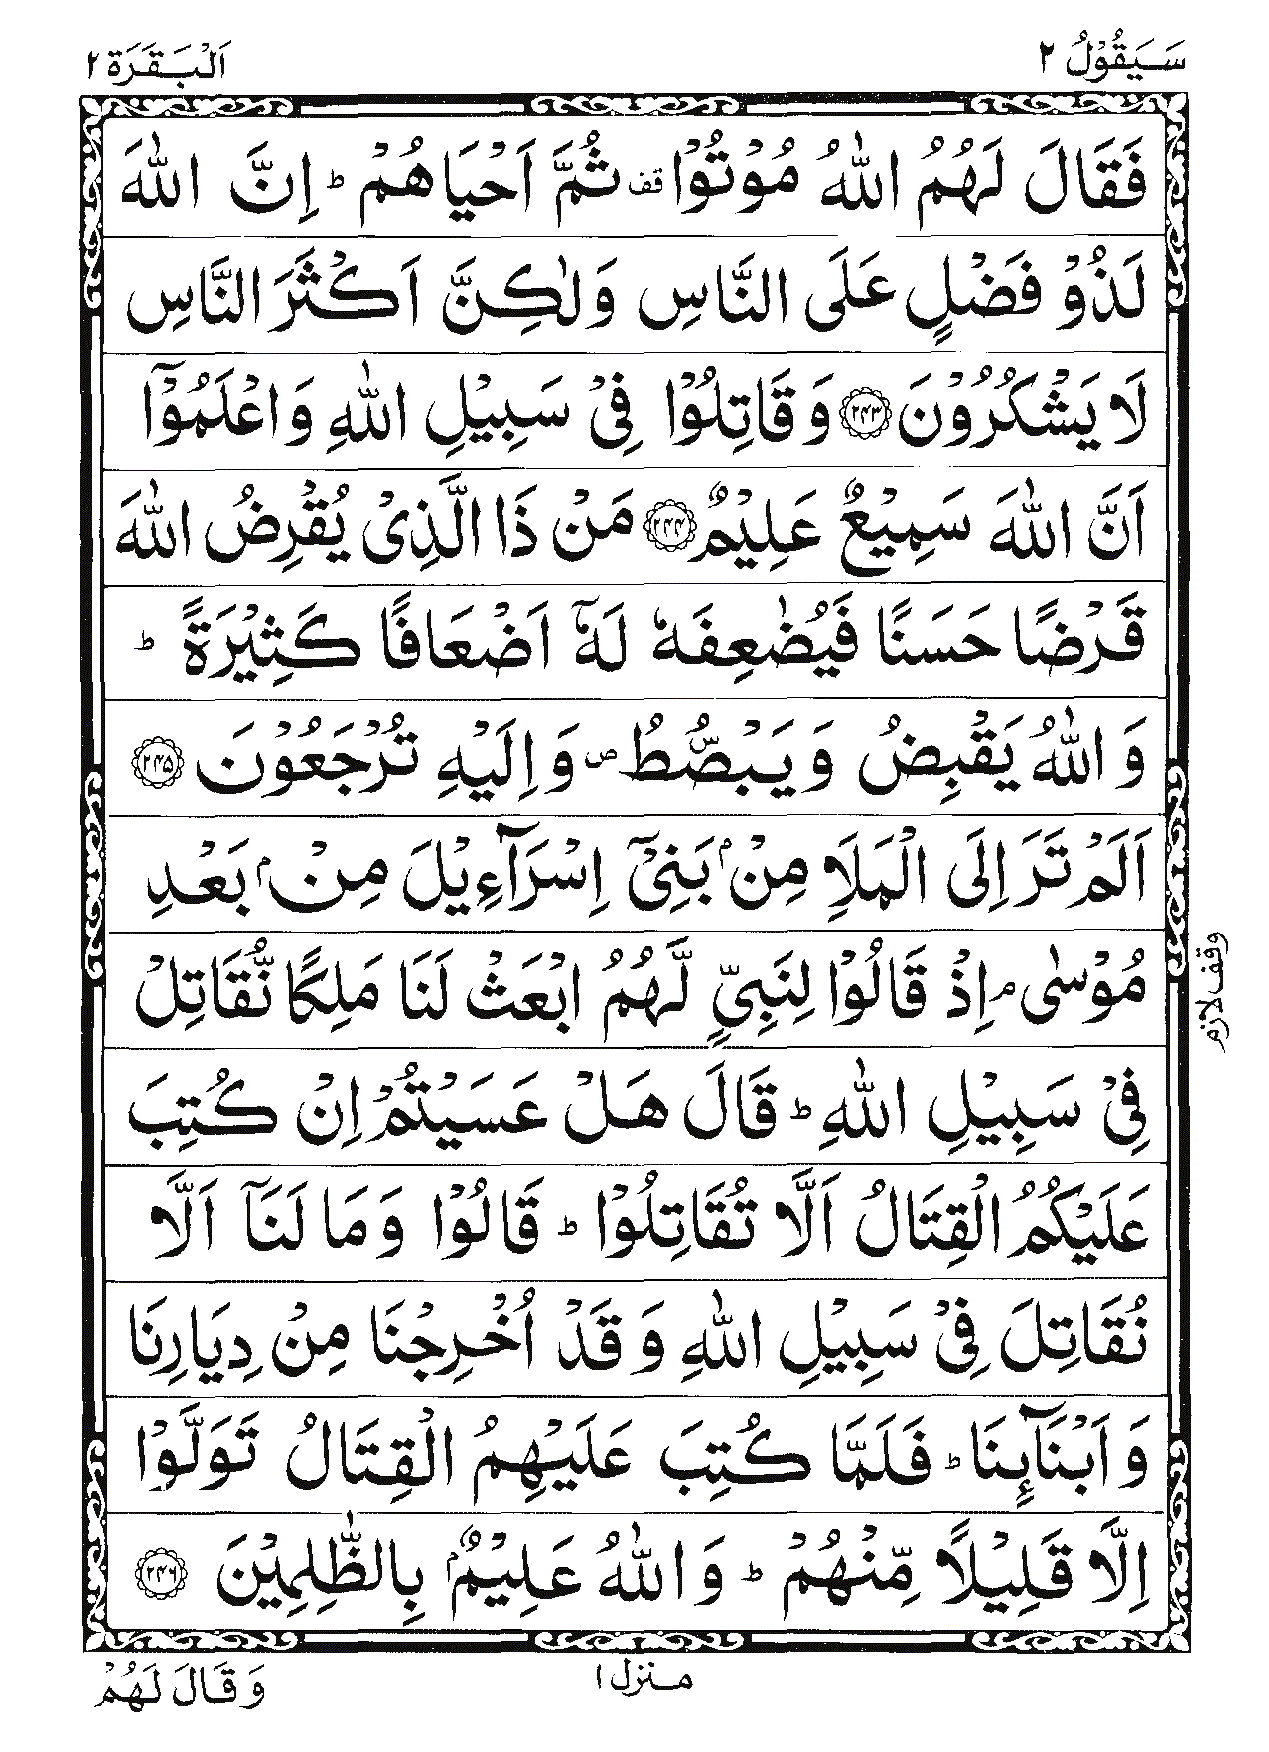 سَيَقُوْلُ ٢
اَلْبَقَرَة ٢
فَقَالَ لَهُمُ اللّٰهُ مُوْتُوْا قف ثُمَّ اَحْيَاهُمْ ؕ اِنَّ اللّٰهَ
لَذُوْ فَضْلٍ عَلَى النَّاسِ وَلٰكِنَّ اَكْثَرَ النَّاسِ
لَا يَشْكُرُوْنَ ﴿۲۴۳﴾ وَقَاتِلُوْا فِىْ سَبِيْلِ اللّٰهِ وَاعْلَمُوْٓا
اَنَّ اللّٰهَ سَمِيْعٌ عَلِيْمٌ ﴿۲۴۴﴾ مَنْ ذَا الَّذِىْ يُقْرِضُ اللّٰهَ
قَرْضًا حَسَنًا فَيُضٰعِفَهٗ لَهٗٓ اَضْعَافًا كَثِيْرَةً ؕ
وَاللّٰهُ يَقْبِضُ وَيَبْصُّۜطُ ص وَاِلَيْهِ تُرْجَعُوْنَ ﴿۲۴۵﴾
اَلَمْ تَرَ اِلَى الْمَلَاِ مِنْۢ بَنِىْٓ اِسْرَآءِيْلَ مِنْۢ بَعْدِ
مُوْسٰى ۘ اِذْ قَالُوْا لِنَبِىٍّ لَّهُمُ ابْعَثْ لَنَا مَلِكًا نُّقَاتِلْ
وقف لازم
فِىْ سَبِيْلِ اللّٰهِ ؕ قَالَ هَلْ عَسَيْتُمْ اِنْ كُتِبَ
عَلَيْكُمُ الْقِتَالُ اَلَّا تُقَاتِلُوْا ؕ قَالُوْا وَمَا لَنَآ اَلَّا
نُقَاتِلَ فِىْ سَبِيْلِ اللّٰهِ وَقَدْ اُخْرِجْنَا مِنْ دِيَارِنَا
وَاَبْنَآئِنَا ؕ فَلَمَّا كُتِبَ عَلَيْهِمُ الْقِتَالُ تَوَلَّوْا
اِلَّا قَلِيْلًا مِّنْهُمْ ؕ وَاللّٰهُ عَلِيْمٌۢ بِالظّٰلِمِيْنَ ﴿۲۴۶﴾
منزل ١
وَقَالَ لَهُمْ